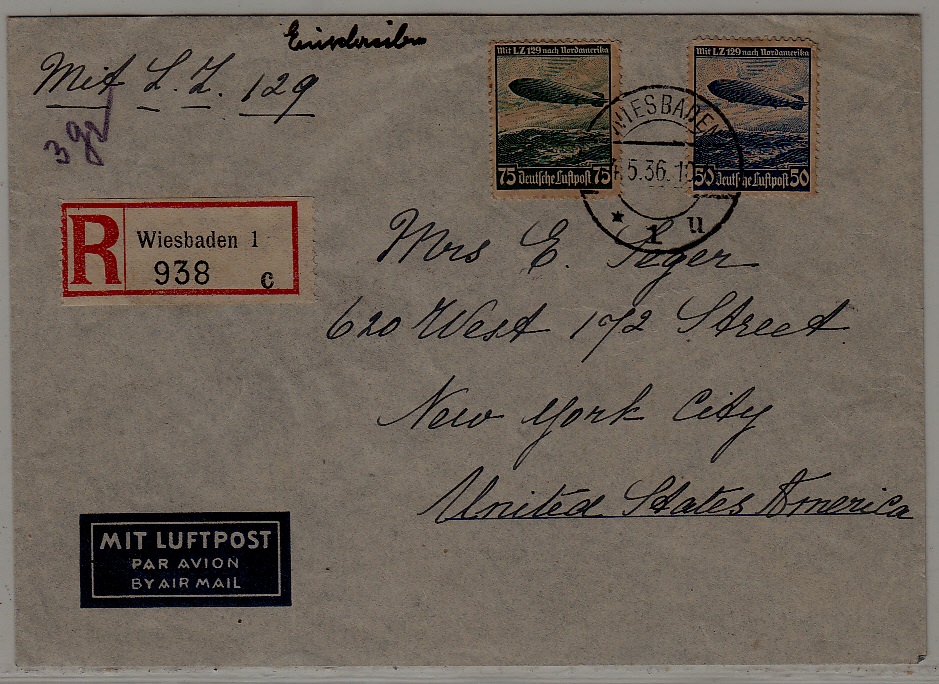 Einschreiben
Mit L. Z. 129
3 gr
Mit LZ 129 nach Nordamerika
75 Deutsche Luftpost 75
Mit LZ 129 nach Nordamerika
50 Deutsche Luftpost 50
WIESBADEN
5.36.
* 1 u
R
Wiesbaden 1
938 c
Mrs E. Seger
620 West 172 Street
New York City
United States America
MIT LUFTPOST
PAR AVION
BY AIR MAIL